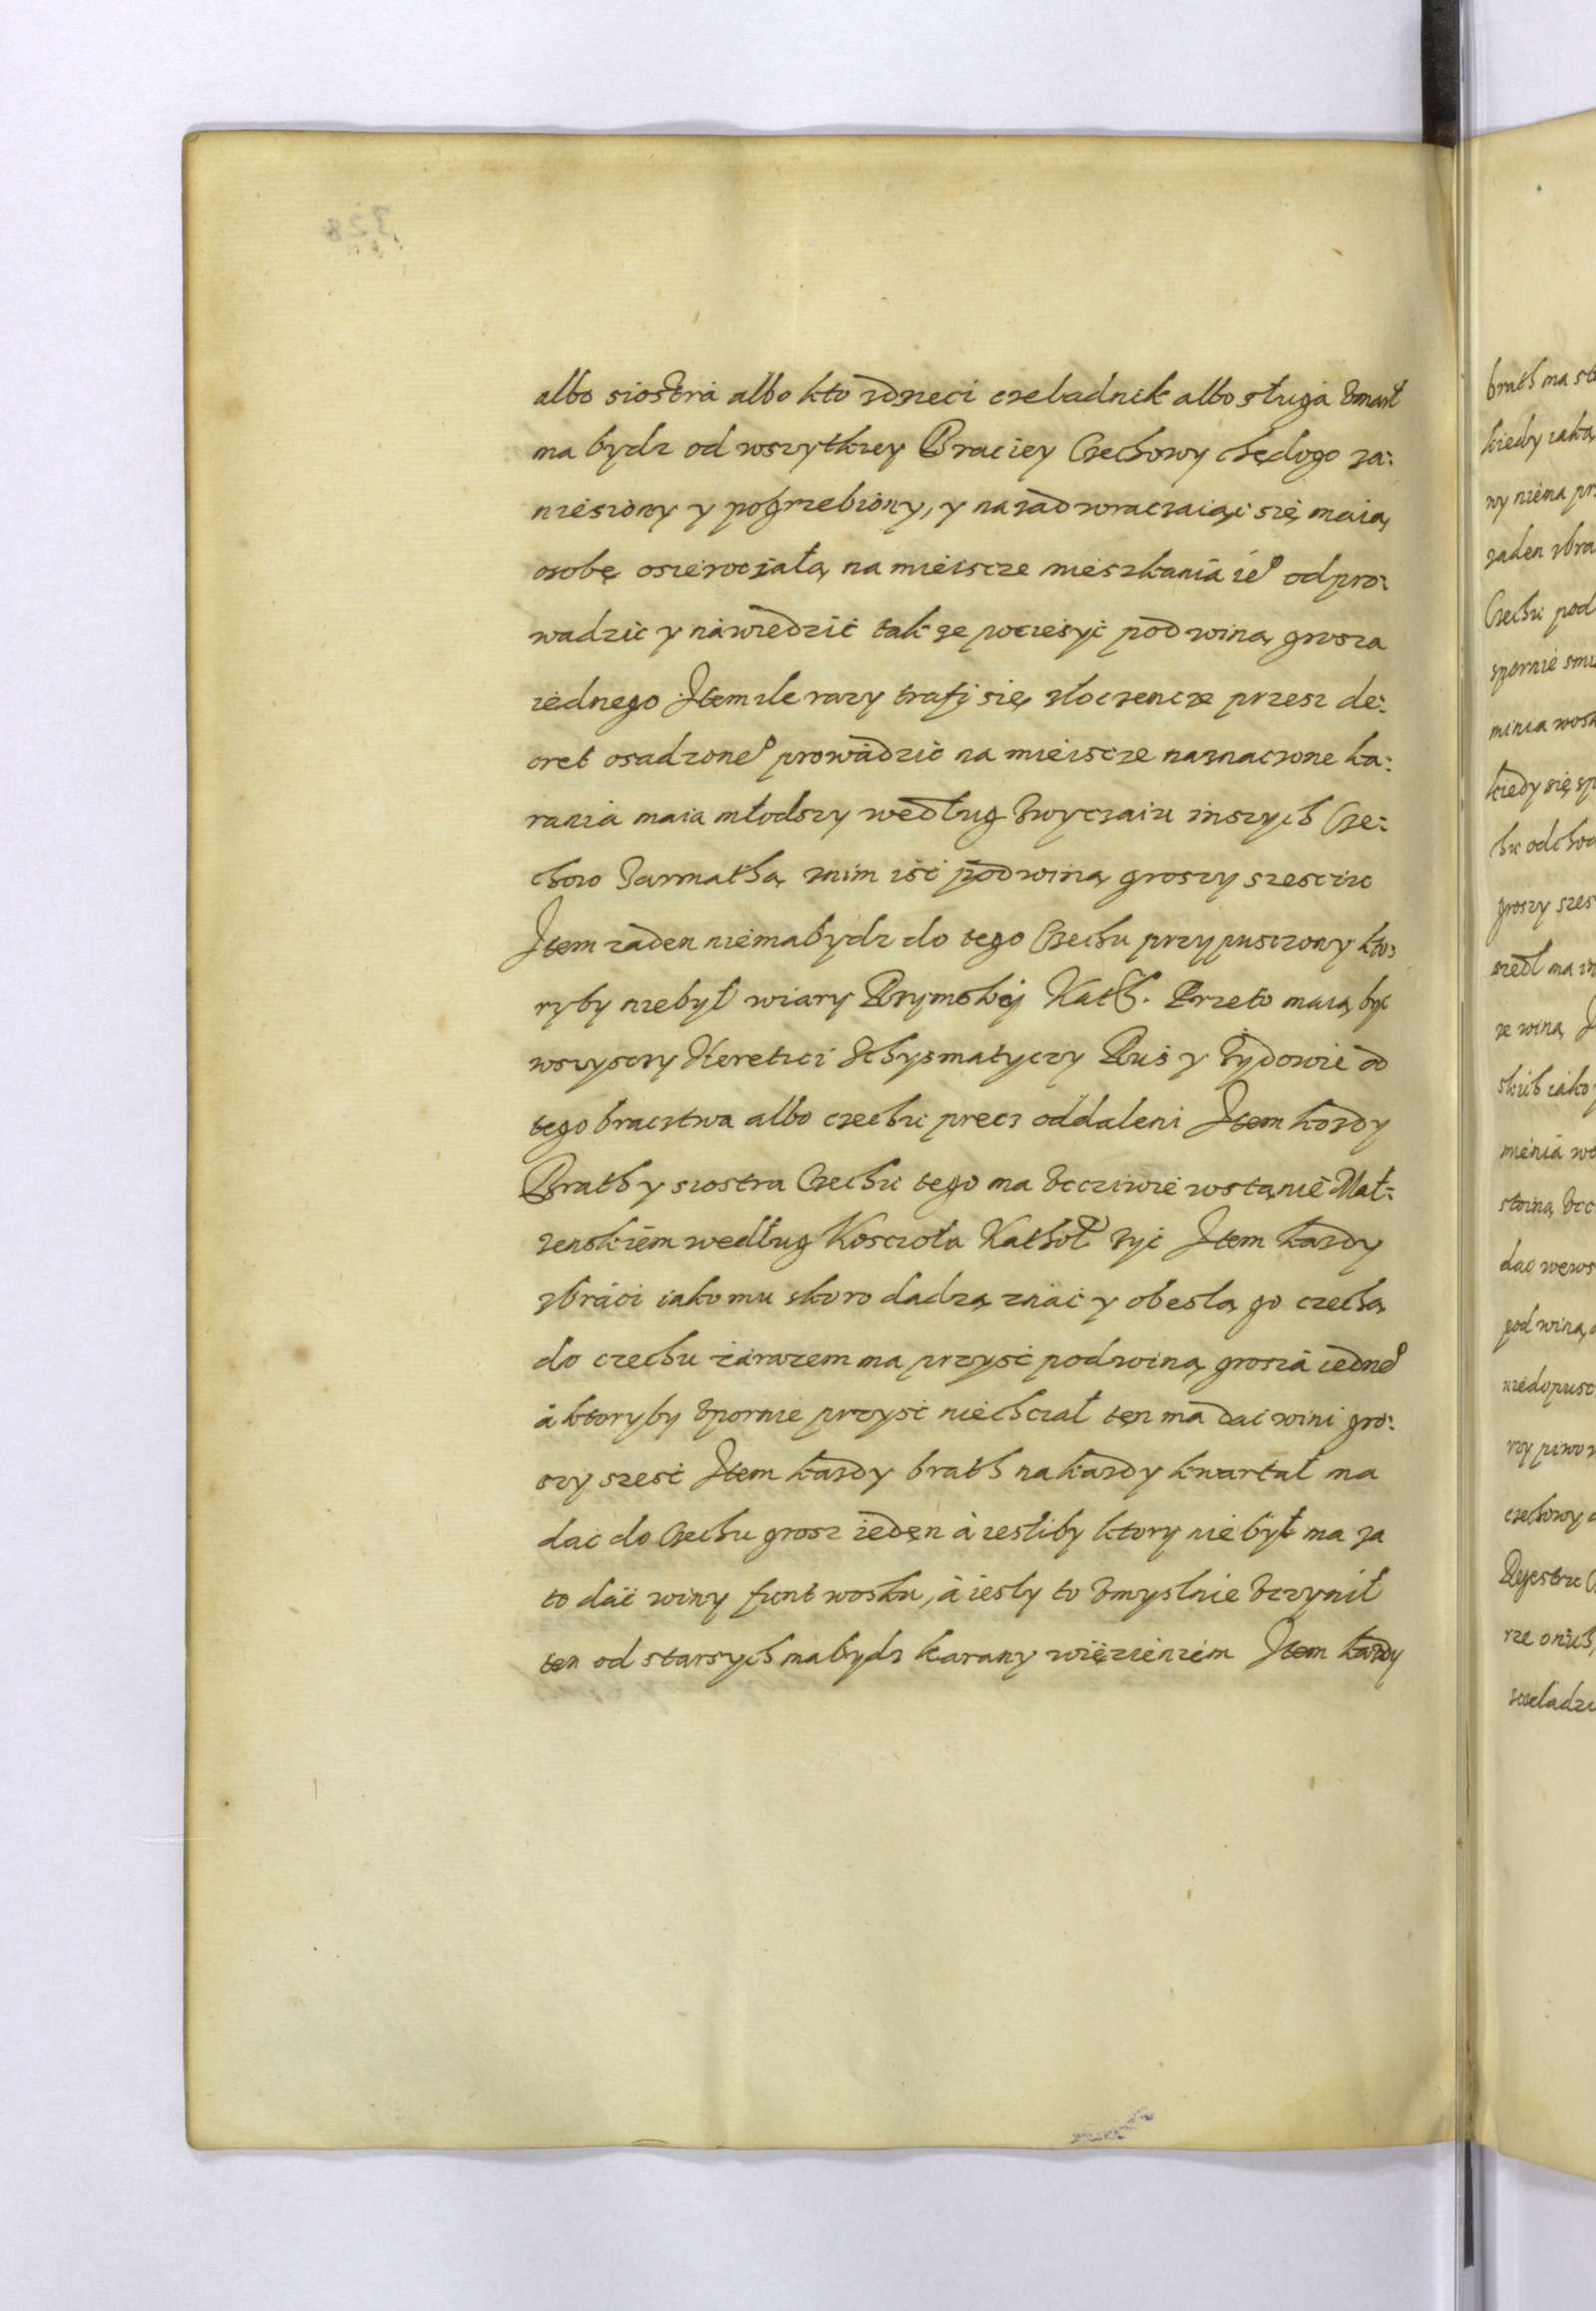 albo siostrá albo kto zdzieci czeladnik albo sługá Vmarł
ma bydz od wszytkiey Braciey Czechowy chędogo za:
niesiony y pogrzebiony, y nazad wracaiąc się maią
osobę osierociałą na mieiscze mieszkaniá ieº odpro:
wadzić y náwiedzić tak ze pocieszyć pod winą grosza
iednego Item ile razy trafi się złoczencze przesz de:
cret osadzoneº prowádzic na mieiscze naznaczone ka:
rania maia młodszy według Zwyczaiu inszych Cze:
chow Zarmathą znim iść pod winą groszy szesciu
Item zaden niema bydz do tego Czechu przypuszczony kto:
ryby niebył wiary Rzymskiej Kath. Przeto maią być
wszyscy Heretici Schysmatyczy Ruś y Żydowie od
tego bractwa albo czechu precz oddaleni Item kozdy
Brath y siostra Czechu tego ma Vccziwie wstanie Mał:
zenskiem według Kosciola Kathol żyć Item każdy
zbráci iako mu skoro dadzą znáć y obeslą go czechą
do czechu zárazem ma przyść pod winą grosza iedneº
á ktoryby Vpornie przyść niechciał ten ma dać wini gro:
szy szesć Item każdy brath na każdy kwartał ma
dac do Czechu grosz ieden á iesliby ktory nie był ma za
to dáć winy funt wosku, á iesly to Vmyslnie Vczynił
ten od starszych ma bydz karany więzieniem Item każdy
brath ma
kiedy iaką
wy niema
zaden zbra
Czechu pod
spornie
kiedy się
chu odchod
groszy szes
ze winą
skich iako
mienia
stoiną Vcc
pod winą
niedopusc
czechowy